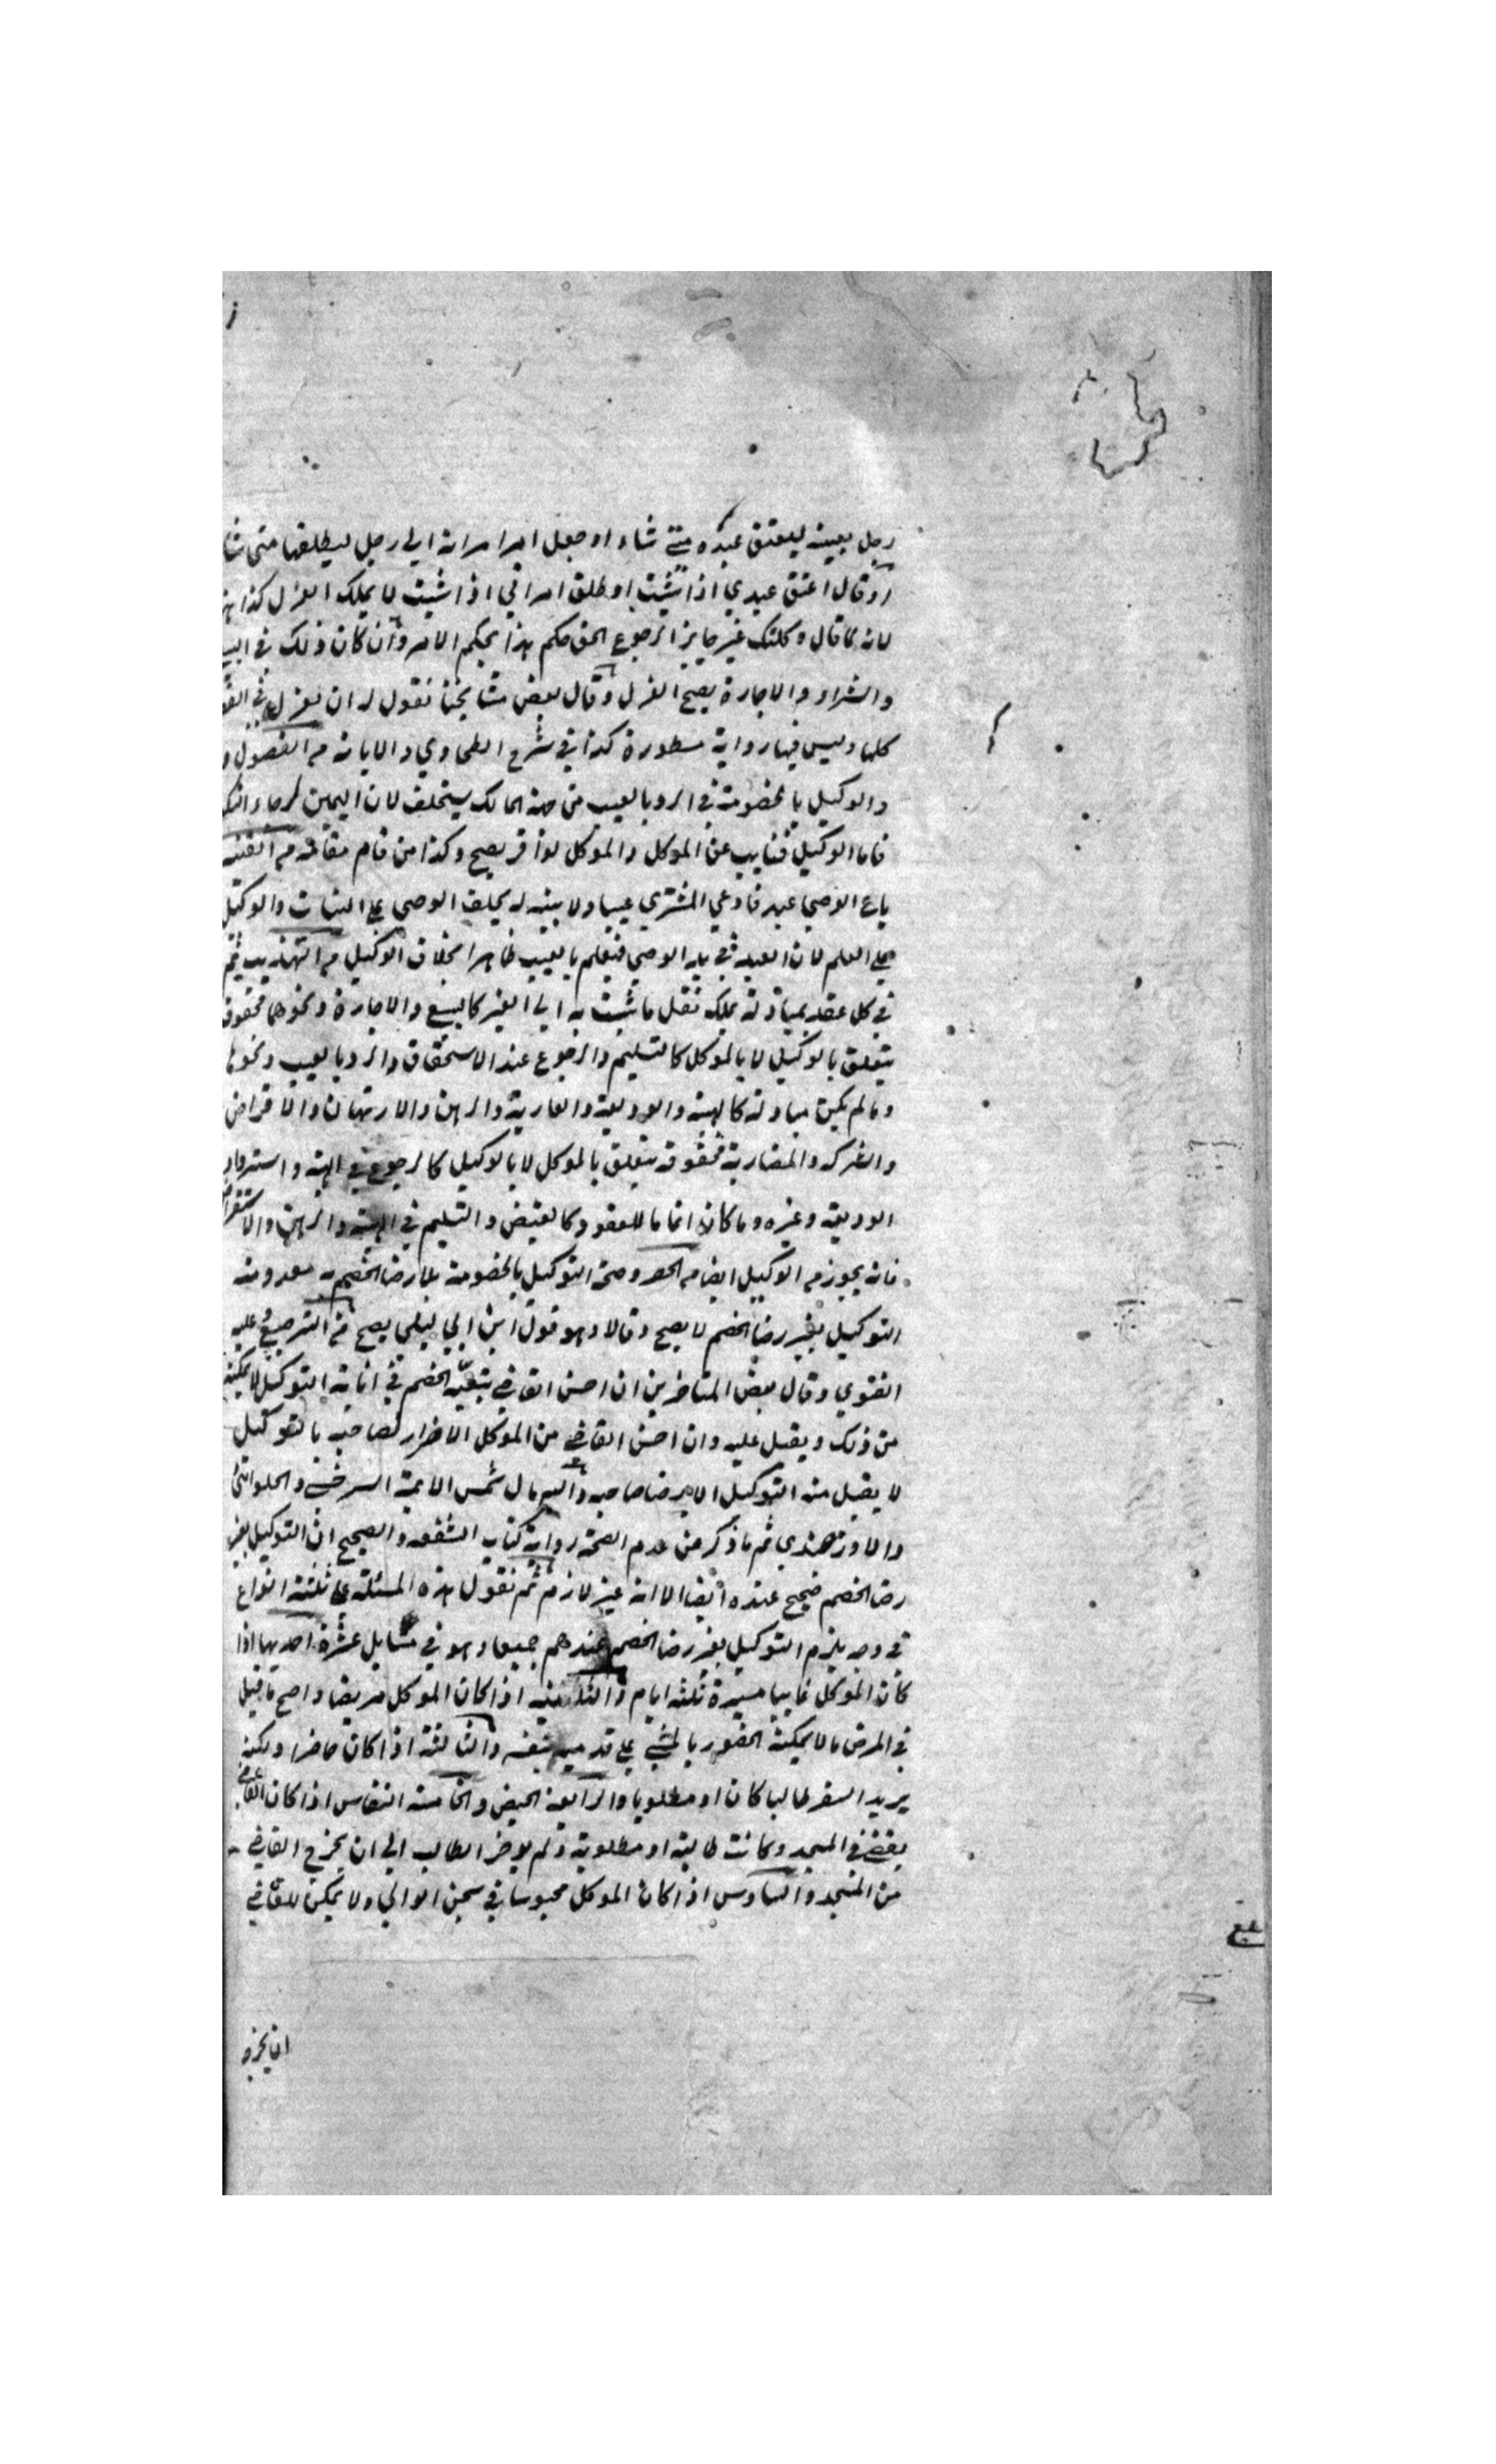 رجل بعينه ليعتق عبده متى شاء او جعل امر امراته الى رجل ليطلقها متى شا
او قال اعتق عبدي اذا شئت او طلق امراتي اذا شئت لا يملك العزل كذا
لانه كما قال وكلتك غير جايز الرجوع الحق حكم هذا بحكم الامر وان كان ذلك في البيع
والشراء والاجارة يصح العزل وقال بعض مشايخنا نقول له ان يعزل في
كلها وليس فيها رواية مسطورة كذا في شرح الطحاوي والابانة من الفصول
والوكيل بالخصومة في الرد بالعيب من جهة المالك يستحلف لان اليمين لرجاء النكو
فاما الوكيل فنايب عن الموكل والموكل لو اقر يصح وكذا من قام مقامه من القنية
باع الوصي عبد فادعي المشتري عيبا ولا بينة له يحلف الوصي على البتات والوكيل
على العلم لان العبد في يد الوصي فيعلم بالعيب ظاهرا بخلاف الوكيل من التهذيب ثم
في كل عقد مبادلة يملك نقل ما ثبت به الى الغير كالبيع والاجارة ونحوهما فحقوق
يتعلق بالوكيل لا بالموكل كالتسليم والرجوع عند الاستحقاق والرد بالعيب ونحوها
وما لم يكن مبادلة كالهبة والوديعة والعارية والرهن والارتهان والاقراض
والشركة والمضاربة فحقوقه يتعلق بالموكل لا بالوكيل كالرجوع في الهبة واسترداد
الوديعة وغيره وما كان اتماما للعقود كالقبض والتسليم في الهبة والرهن والاستقراض
فانه يجوز من الوكيل ايضا من الحصر وصحة التوكيل بالخصومة بلا رضا الخصم
التوكيل بغير رضا الخصم لا يصح وقالا وهو قول ابن ابي ليلى يصح من الترجيح وعليه
الفتوي وقال بعض المتاخرين ان احس القاضي بتعنت الخصم في اباية التوكيل لا يمكنه
من ذلك ويقبل عليه وان احس القاضي من الموكل الاضرار لصاحبه بالتوكيل
لا يقبل منه التوكيل الا برضا صاحبه واليه مال شمس الايمة السرخسي والحلوانى
والاوزجندي ثم ما ذكر من عدم الصحة رواية كتاب الشفعة والصحيح ان التوكيل بغير
رضا الخصم صحيح عنده ايضا الا انه غير لازم ثم نقول هذه المسئلة على ثلثة انواع
في وجه يلزم التوكيل بغير رضا الخصم عندهم جميعا وهو في مسايل عشرة احديها اذا
كان الموكل غايبا مسيرة ثلثة ايام والثانية اذا كان الموكل مريضا واصح ما قيل
في المرض ما لا يمكنه الحضور بالمشي على قدميه بنفسه والثالثة اذا كان حاضرا ولكنه
يريد السفر طالبا كان او مطلوبا والرابعة الحيض والخامسة النفاس اذا كان القاضي
يقضي في المسجد وكانت طالبة او مطلوبة ولم يوخر الطالب الى ان يخرج القاضي
من المسجد والسادس اذا كان الموكل محبوسا في سجن الوالي ولا يمكن للقاضي
ان يخرج